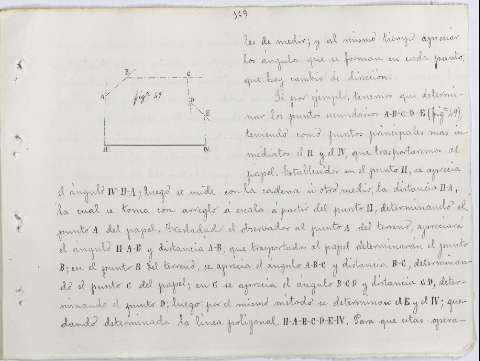 159
les de medir; y al mismo tiempo apreciar
los ángulos que se forman en cada punto,
que hay cambio de dirección.
Si por ejemplo, tenemos que determi-
nar los puntos secundarios A-B-C-D-E (figª 49),
teniendo como puntos principales mas in-
mediatos el II y el IV, que trasportaremos al
papel. Establecidos en el punto II, se aprecia
B
C
A
figª 49
D
E
II
IV
el ángulo IV-II-A; luego se mide con la cadena ú otro medio, la distancia II-A,
la cual se toma con arreglo á escala á partir del punto II, determinando el
punto A del papel. Trasladado el observador al punto A del terreno, apreciará
el ángulo II-A-B y distancia A-B, que trasportados al papel determinarán el punto
B; en el punto B del terreno, se aprecia el ángulo A-B-C y distancia B-C, determinan-
do el punto C del papel; en C se aprecia el ángulo B-C-D y distancia C-D, deter-
minando el punto D; luego por el mismo método se determinan el E y el IV; que-
dando determinada la línea poligonal II-A-B-C-D-E-IV. Para que estas opera-